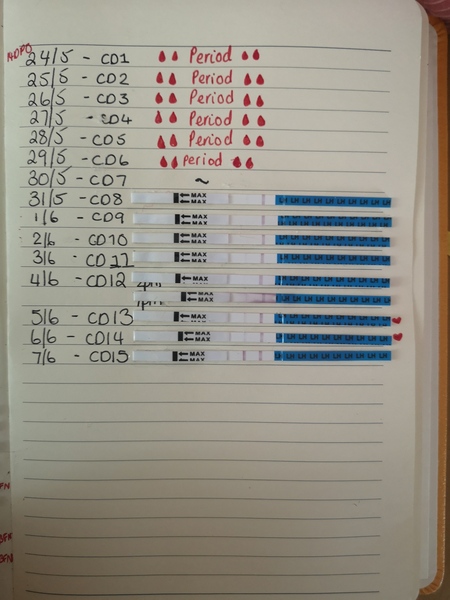 14DPO
24/5 - CD1 Period
25/5 - CD2 Period
26/5 - CD3 Period
27/5 - CD4 Period
28/5 - CD5 Period
29/5 - CD6 period
30/5 - CD7 ~
31/5 - CD8 MAX MAX LH LH LH LH LH LH LH LH LH
1/6 - CD9 MAX MAX LH LH LH LH LH LH LH LH LH
2/6 - CD10 MAX MAX LH LH LH LH LH LH LH LH LH
3/6 - CD11 MAX MAX LH LH LH LH LH LH LH LH LH
4/6 - CD12 4pm MAX MAX LH LH LH LH LH LH LH LH LH
7pm MAX MAX LH LH LH LH LH LH LH LH LH
5/6 - CD13 MAX MAX LH LH LH LH LH LH LH LH LH
6/6 - CD14 MAX MAX LH LH LH LH LH LH LH LH LH
7/6 - CD15 MAX MAX LH LH LH LH LH LH LH LH LH
BFN